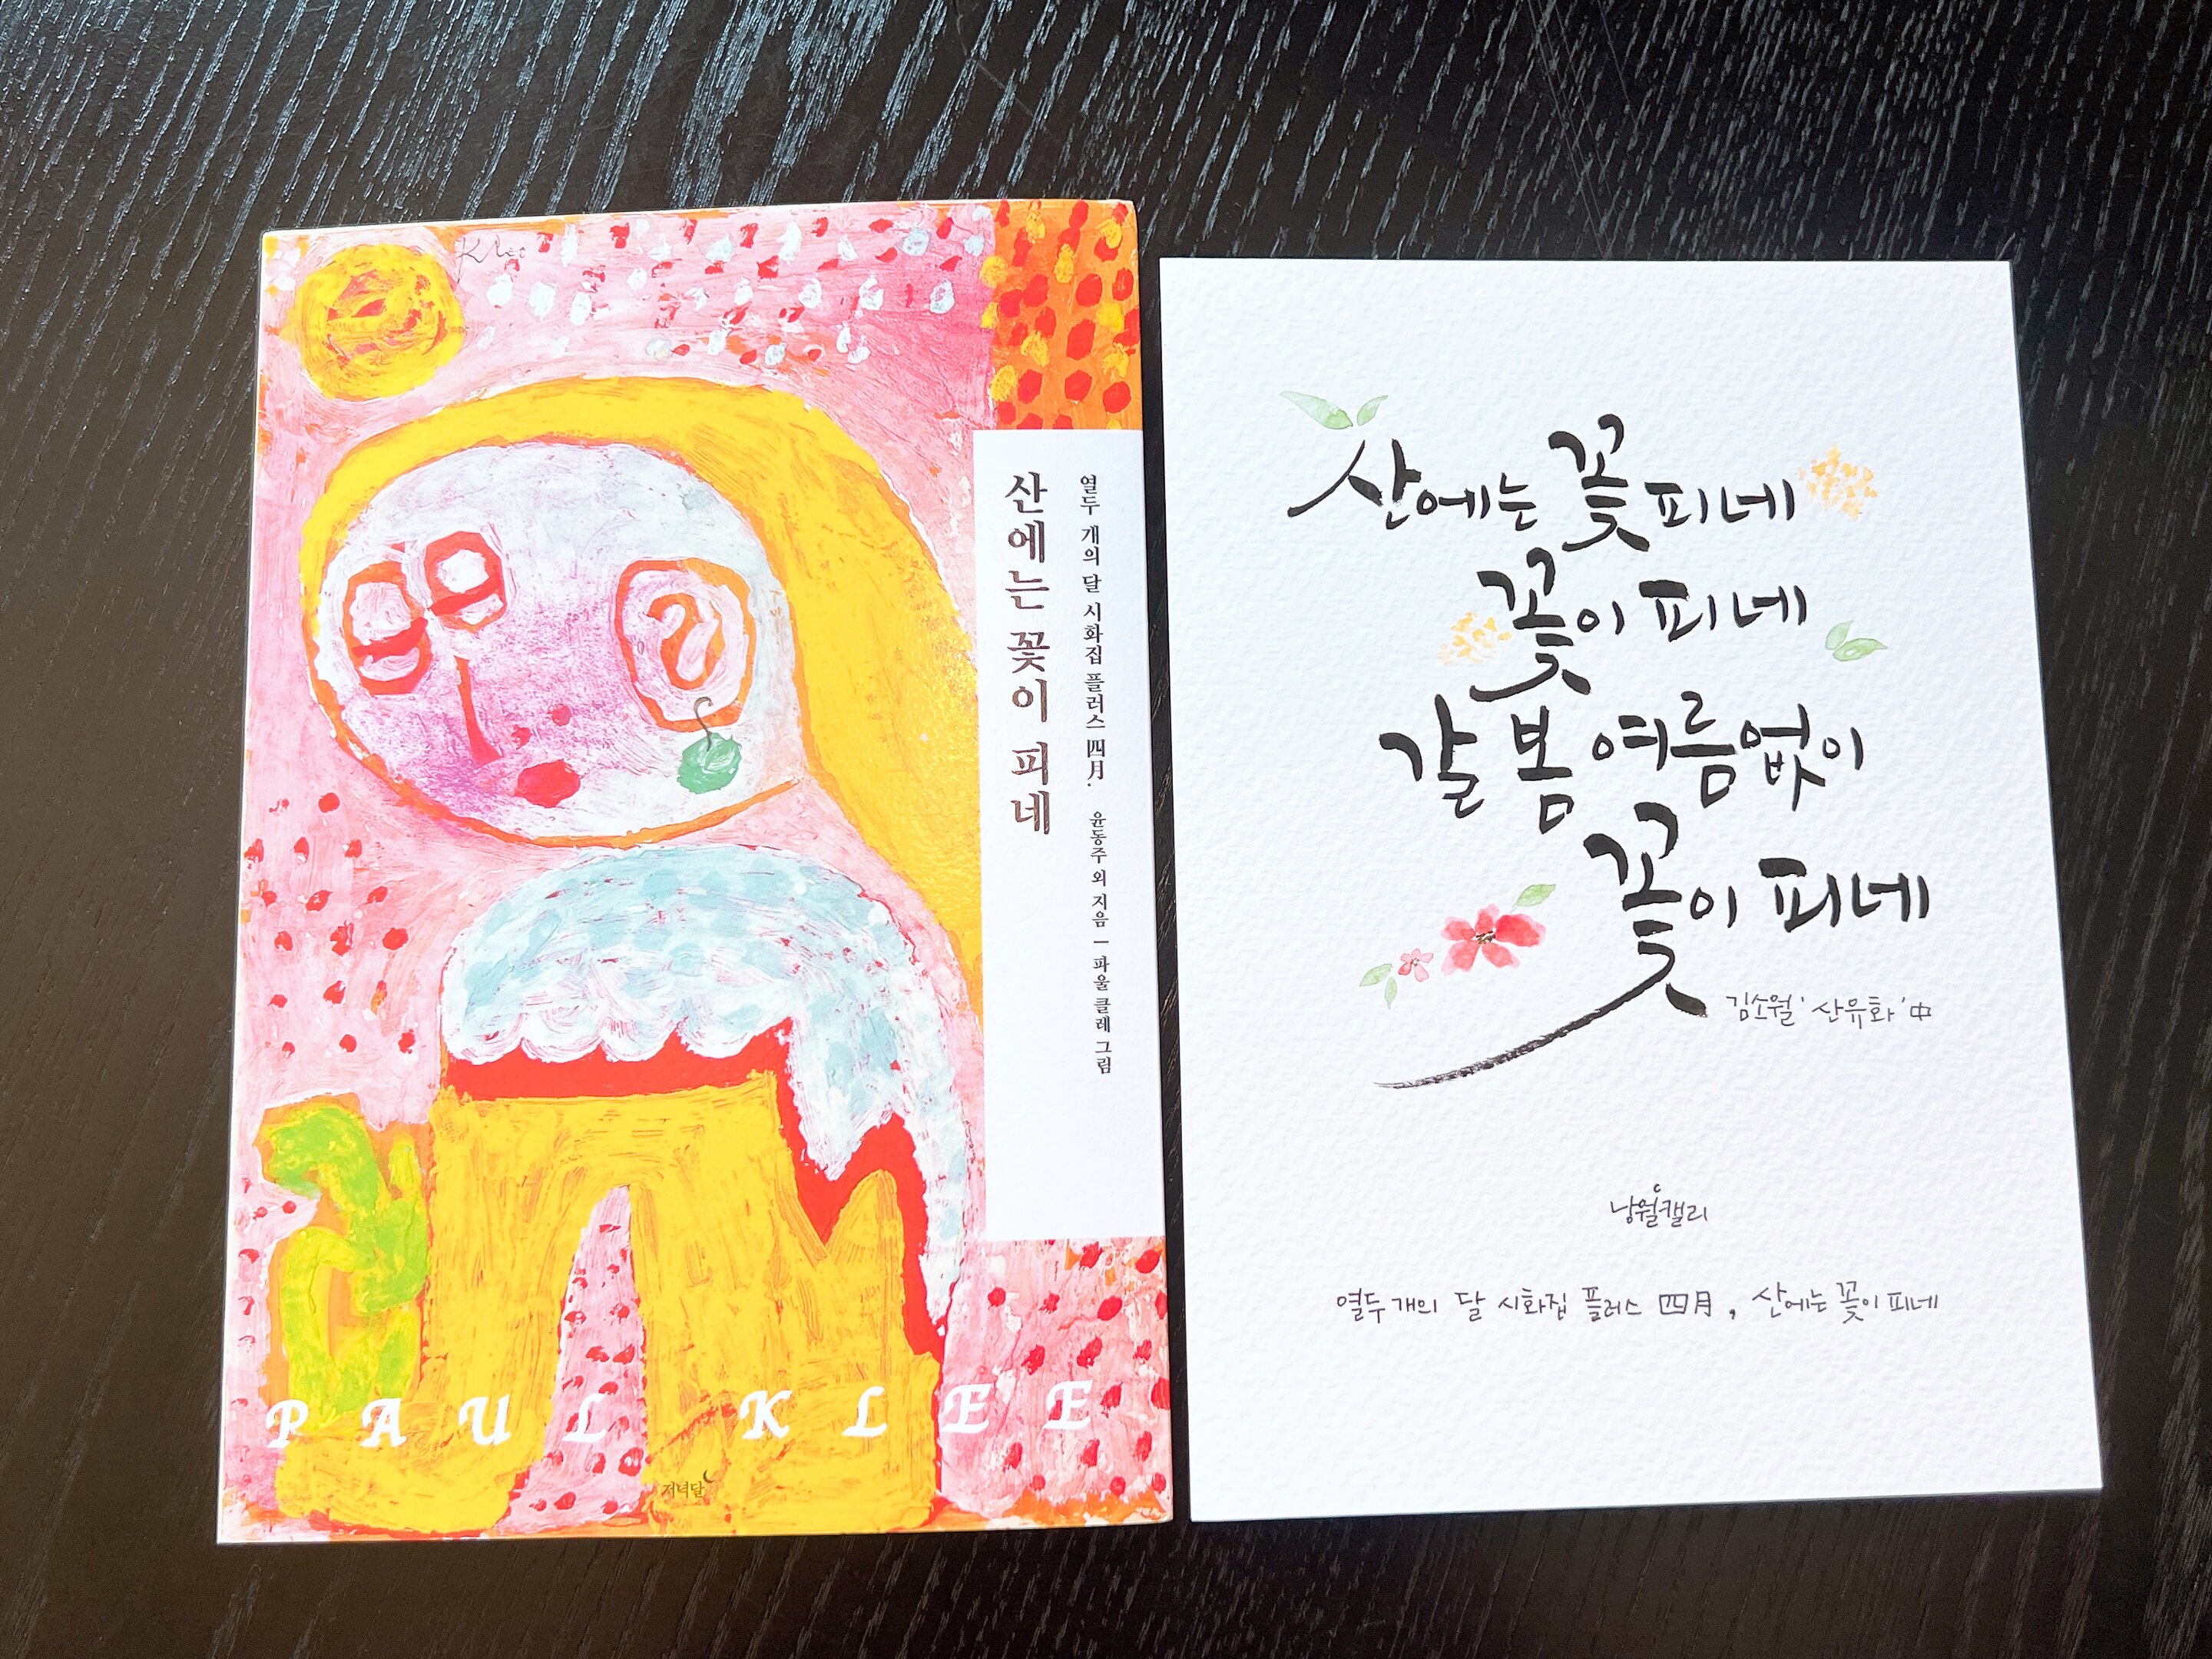 Klee
열두 개의 달 시화집 플러스 四月.
윤동주 외 지음 | 파울 클레 그림
산에는 꽃이 피네
PAUL KLEE
저녁달
산에는 꽃 피네
꽃이 피네
갈 봄 여름없이
꽃이 피네
김소월 '산유화' 中
낭월캘리
열두 개의 달 시화집 플러스 四月, 산에는 꽃이 피네